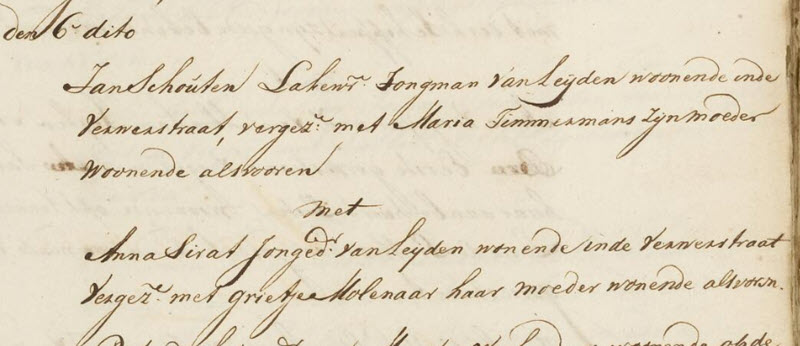 den 6e dito
Jan Schouten Lakenwr. Jongman van Leijden woonende inde
Verwerstraat, vergezt. met Maria Timmermans zijn moeder
woonende alsvooren
met
Anna Sirat Jonged. van Leyden wonende inde Verwerstraat
Vergezt. met grietje Molenaar haar moeder wonende alsvorn.